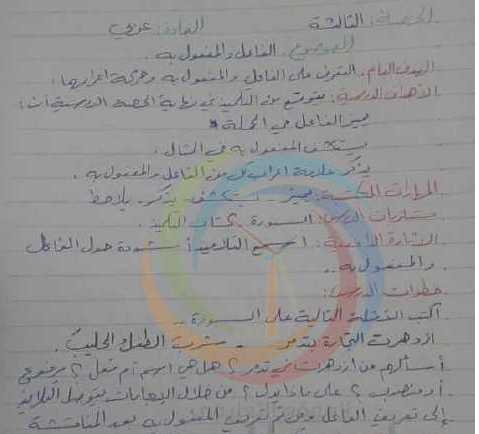 الحصة: الثالثة المادة: عربي
الموضوع: الفاعل والمفعول به.
الهدف العام: التعرف على الفاعل والمفعول به وحركة اعرابها:
الأهداف الدرسية: يتوقع من التلميذ في نهاية الحصة الدرسية أن:
يميز الفاعل في الجملة
يستكشف المفعول به في المثال.
يذكر علامة اعراب كل من الفاعل والمفعول به.
المهارات المكتسبة: يميز - يستكشف - يذكر - يلاحظ
مستلزمات الدرس: السبورة - كتاب التلميذ.
الإثارة الدافعية: اسمع التلاميذ أنشودة حول الفاعل
والمفعول به..
خطوات الدرس:
اكتب الأمثلة التالية على السبورة..
ازدهرت التجارة بتدمر - شرب الطفل الحليب.
أسألهم من ازدهرت في تدمر؟ هل هي اسم أم فعل؟ مرفوع
أم منصوب؟ على ماذا يدل؟ من خلال الإجابات يتوصل التلاميذ
إلى تعريف الفاعل ومن ثم تعريف المفعول به بعد المناقشة